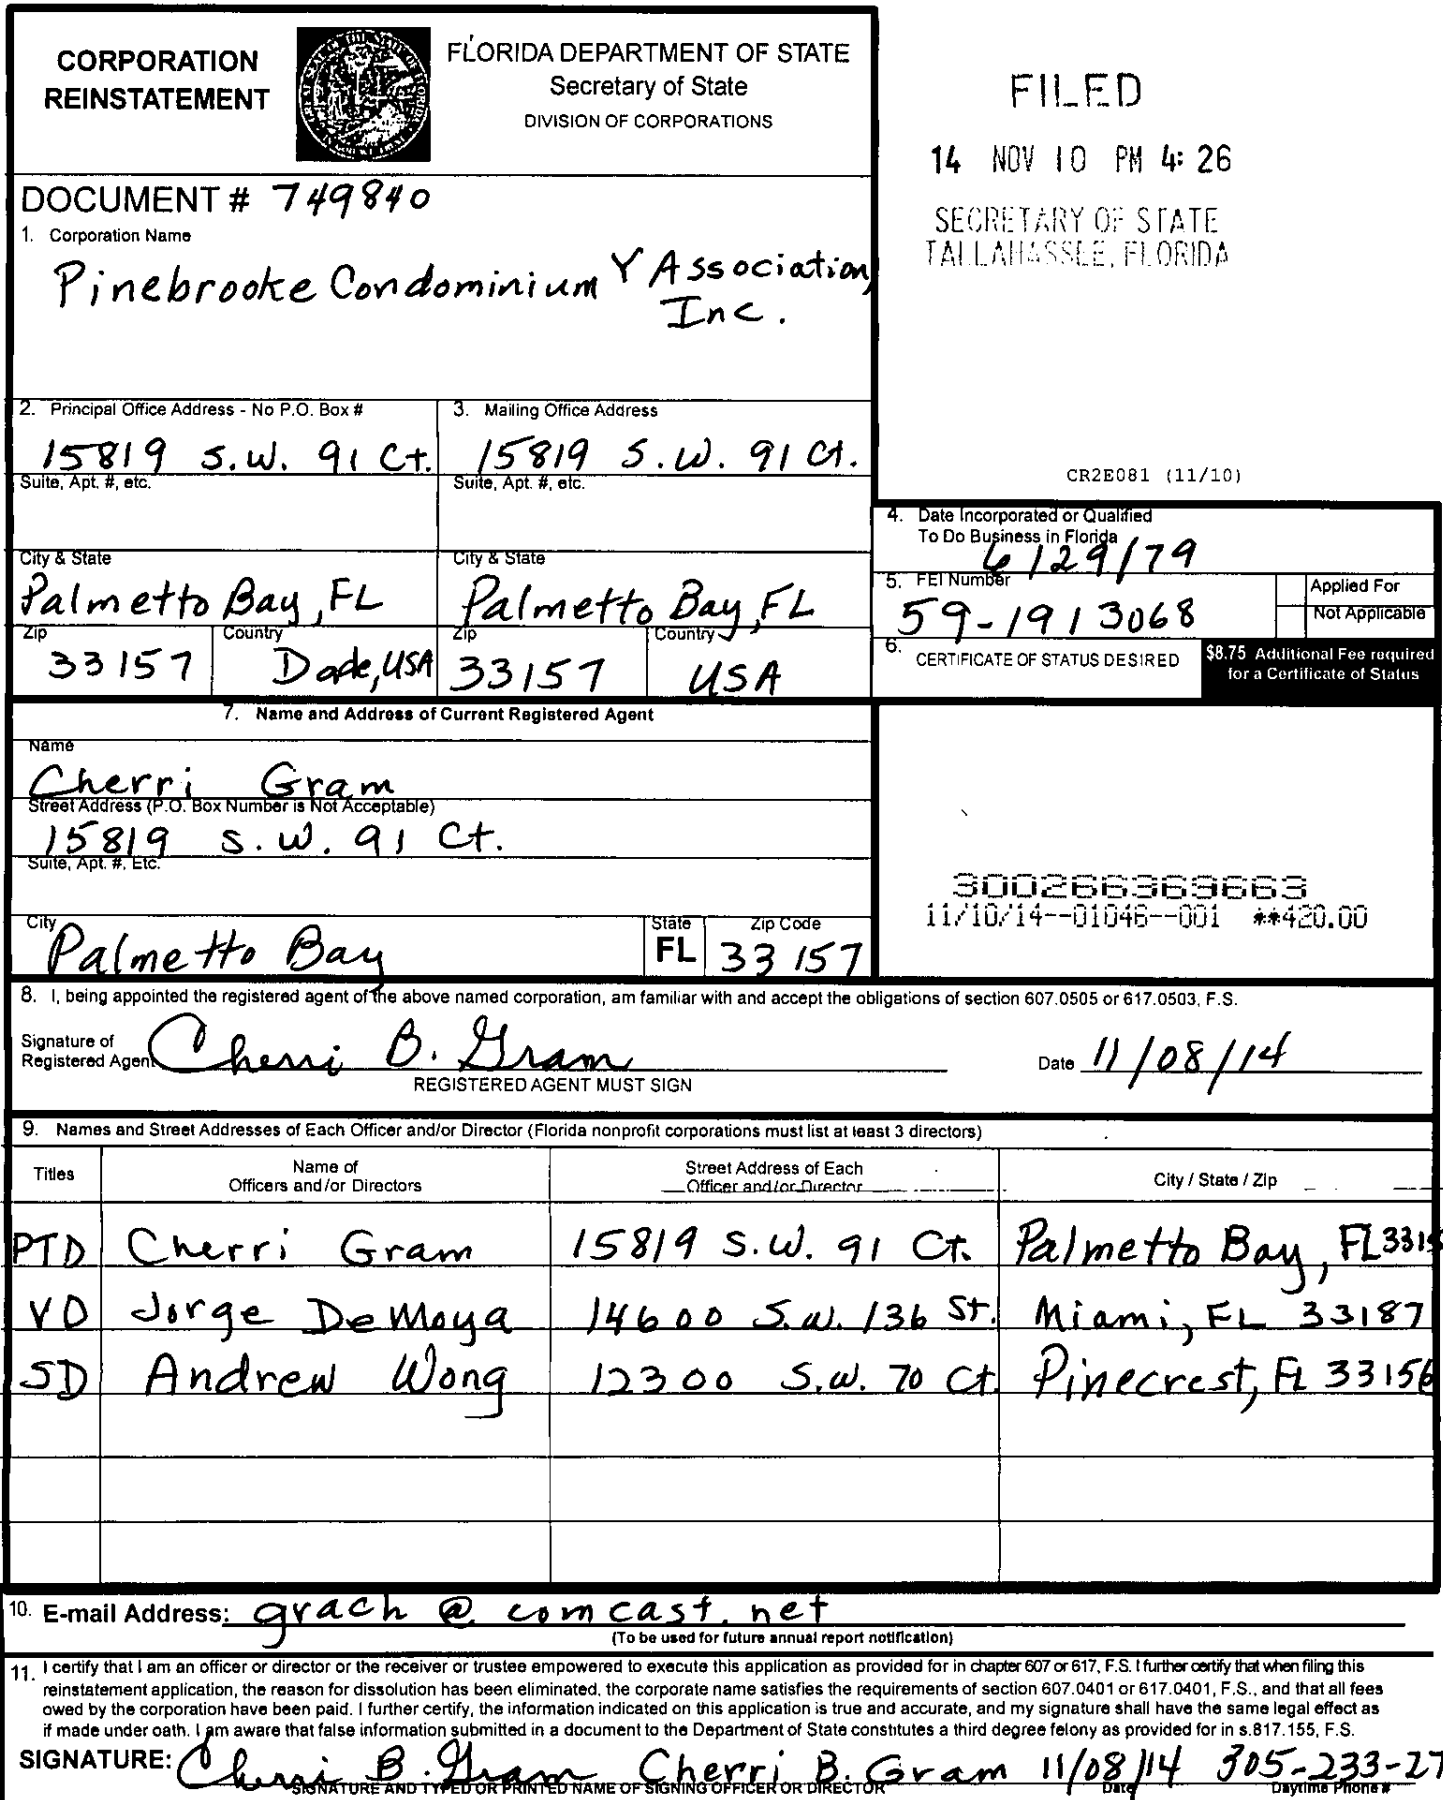 CORPORATION
REINSTATEMENT
FLORIDA DEPARTMENT OF STATE
Secretary of State
DIVISION OF CORPORATIONS
FILED
14 NOV 10 PM 4: 26
SECRETARY OF STATE
TALLAHASSEE, FLORIDA
DOCUMENT # 749840
1. Corporation Name
Pinebrooke Condominium Y Association,
Inc.
2. Principal Office Address - No P.O. Box #
3. Mailing Office Address
15819 S.W. 91 Ct.
15819 S.W. 91 Ct.
CR2E081 (11/10)
Suite, Apt. #, etc.
Suite, Apt. #, etc.
4. Date Incorporated or Qualified
To Do Business in Florida
6/29/79
City & State
City & State
Palmetto Bay, FL
Palmetto Bay, FL
5. FEI Number
59-1913068
Applied For
Not Applicable
Zip
Country
Zip
Country
33157
Dade, USA
33157
USA
6. CERTIFICATE OF STATUS DESIRED
$8.75 Additional Fee required
for a Certificate of Status
7. Name and Address of Current Registered Agent
Name
Cherri Gram
Street Address (P.O. Box Number is Not Acceptable)
15819 S.W. 91 Ct.
Suite, Apt. #, Etc.
300266369663
11/10/14--01046--001 **420.00
City
State
Zip Code
Palmetto Bay
FL
33157
8. I, being appointed the registered agent of the above named corporation, am familiar with and accept the obligations of section 607.0505 or 617.0503, F.S.
Signature of
Registered Agent
Cherri B. Gram
Date 11/08/14
REGISTERED AGENT MUST SIGN
9. Names and Street Addresses of Each Officer and/or Director (Florida nonprofit corporations must list at least 3 directors)
Titles
Name of
Officers and/or Directors
Street Address of Each
Officer and/or Director
City / State / Zip
PTD Cherri Gram 15819 S.W. 91 Ct. Palmetto Bay, FL
VD Jorge DeMoya 14600 S.W. 136 St. Miami, FL 33187
SD Andrew Wong 12300 S.W. 70 Ct. Pinecrest, FL 33156
10. E-mail Address: grach @ comcast.net
(To be used for future annual report notification)
11. I certify that I am an officer or director or the receiver or trustee empowered to execute this application as provided for in chapter 607 or 617, F.S. I further certify that when filing this
reinstatement application, the reason for dissolution has been eliminated, the corporate name satisfies the requirements of section 607.0401 or 617.0401, F.S., and that all fees
owed by the corporation have been paid. I further certify, the information indicated on this application is true and accurate, and my signature shall have the same legal effect as
if made under oath. I am aware that false information submitted in a document to the Department of State constitutes a third degree felony as provided for in s.817.155, F.S.
SIGNATURE: Cherri B. Gram Cherri B. Gram 11/08/14 305-233-27
SIGNATURE AND TYPED OR PRINTED NAME OF SIGNING OFFICER OR DIRECTOR
Date
Daytime Phone #